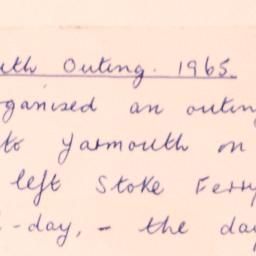 outh Outing. 1965.
rganised an outing
to Yarmouth on
left Stoke Ferry
-day, - the day